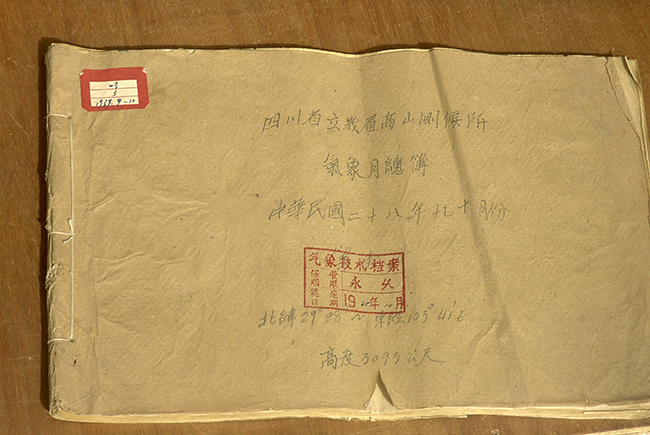 3
1939.9-10
四川省立峨眉高山測候所
氣象月總簿
中華民國二十八年九十月份
气象技术档案
永久
19 年 月
北緯29°28′ 東經103°41′E
高度3093公尺